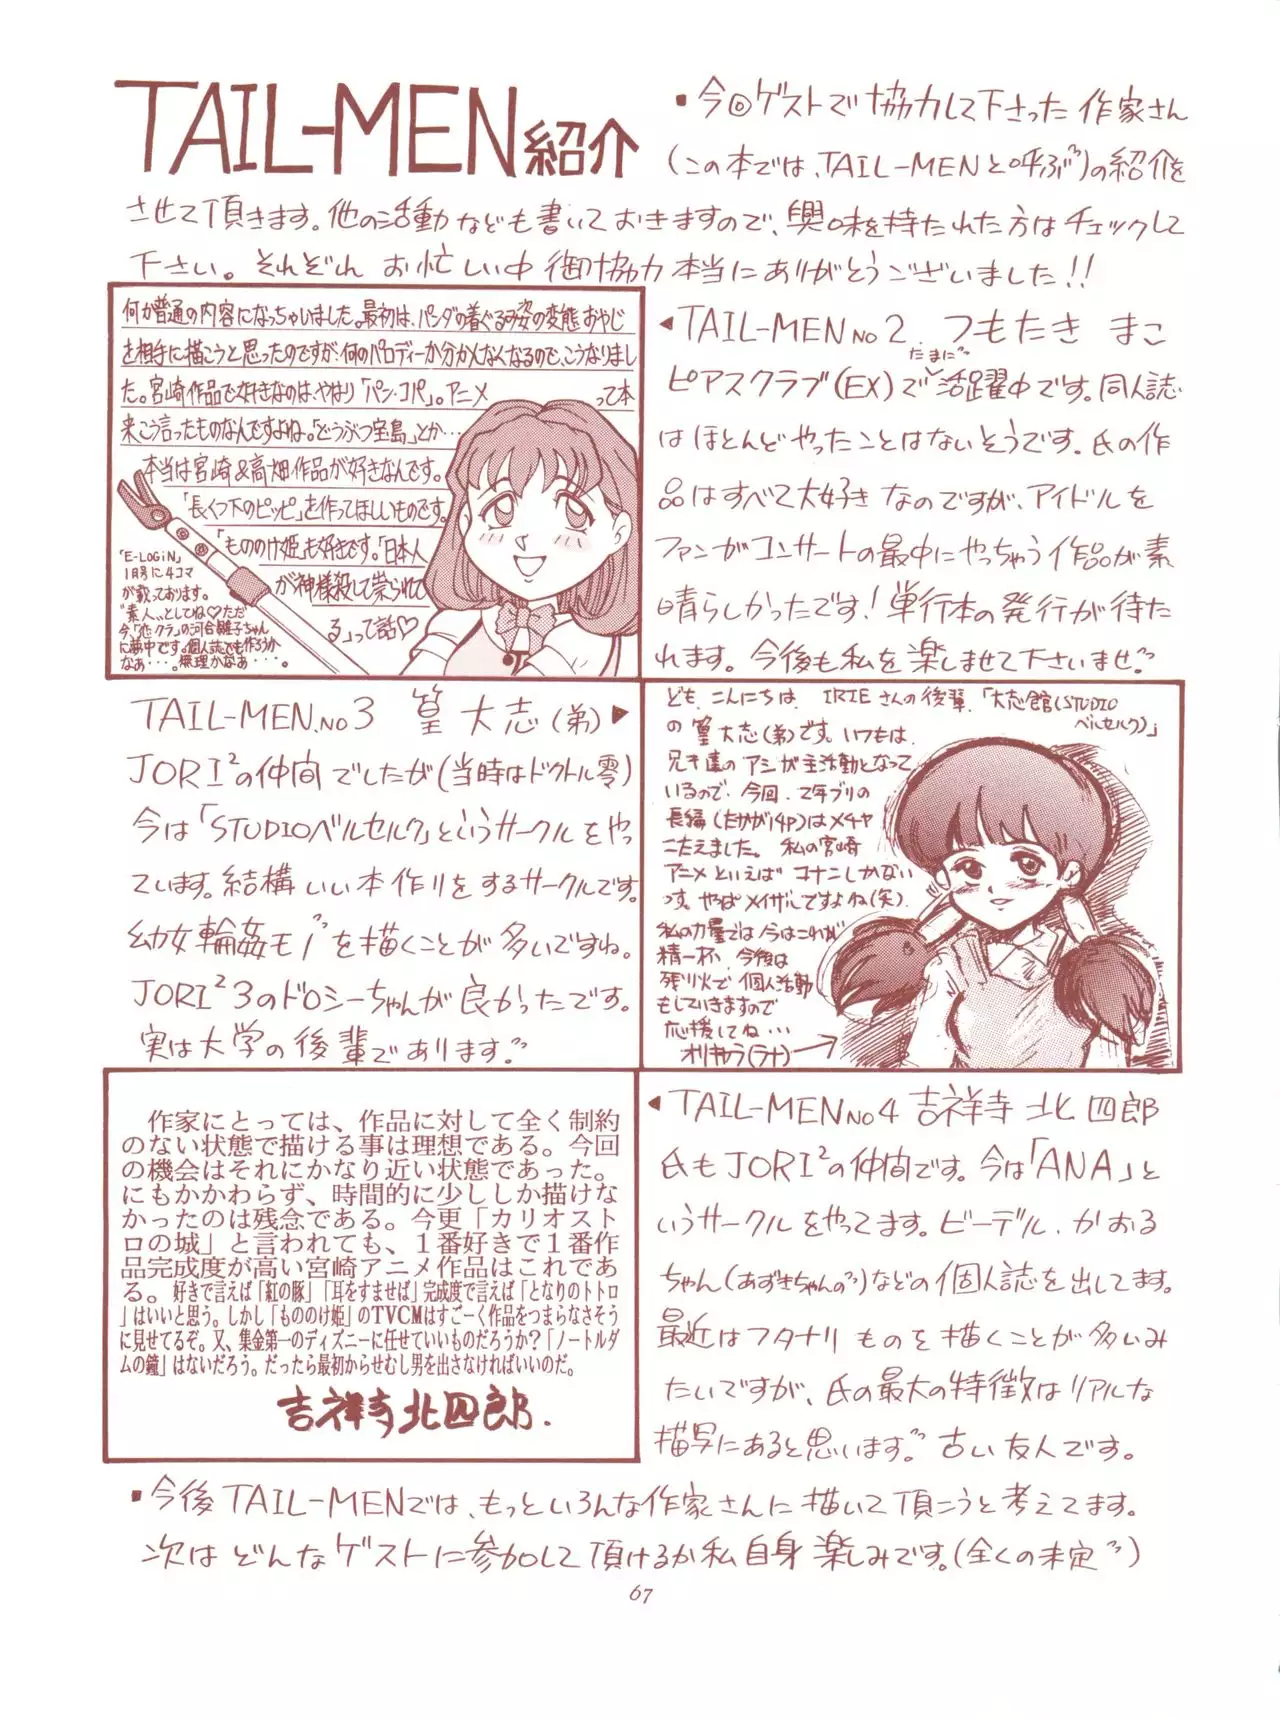 TAIL-MEN紹介
・今回ゲストで協力して下さった作家さん
(この本では、TAIL-MENと呼ぶ)の紹介を
させて頂きます。他の活動なども書いておきますので、興味を持たれた方はチェックして
下さい。それぞれ お忙しい中 御協力本当にありがとうございました!!
何か普通の内容になっちゃいました。最初は、パンダの着ぐるみ姿の変態おやじ
を相手に描こうと思ったのですが、何のパロディーか分かんなくなるので、こうなりまし
た。宮崎作品で好きなのは、やはり「パン・コパ」。アニメって本
来こう言ったものなんですよね。「どうぶつ宝島」とか…
本当は宮崎&高畑作品が好きなんです。
「長くつ下のピッピ」を作ってほしいものです。
「もののけ姫」も好きです。「日本人
が神様殺して祟られて
る」って話♡
「E-LOGiN」
1月号に4コマ
が載っております。
"素人"としてね♡ただ
に夢中です。個人誌でも作ろうか
なぁ・・・。無理かなぁ・・・。
◂TAIL-MEN No 2. つもたき まこ
たまに
ピアスクラブ(EX)で活躍中です。同人誌
はほとんどやったことはないそうです。氏の作
品はすべて大好きなのですが、アイドルを
ファンがコンサートの最中にやっちゃう作品が素
晴らしかったです!単行本の発行が待た
れます。今後も私を楽しませて下さいませ。
TAIL-MEN.No 3 篁 大志(弟)▸
JORI²の仲間でしたが(当時はドクトル零)
今は「STUDIOベルセルク」というサークルをやっ
ています。結構いい本作りをするサークルです。
JORI²3のドロシーちゃんが良かったです。
実は大学の後輩であります。
ども、こんにちは、IRIEさんの後輩、「大志館(STUDIO
ベルセルク)」
の篁大志(弟)です。いつもは、
兄き達のアシが主活動となって
いるので、今回、2年ブリの
長編(たかが14P)はメチャ
こたえました。私の宮崎
アニメといえばコナンしかない
っす。やっぱメイザルですよね(笑).
私の力量では今はこれが
精一杯、今後は
残り火で個人活動
もしていきますので
応援してね…
オリキャラ(ラナ)→
作家にとっては、作品に対して全く制約
のない状態で描ける事は理想である。今回
の機会はそれにかなり近い状態であった。
にもかかわらず、時間的に少ししか描けな
かったのは残念である。今更「カリオスト
ロの城」と言われても、1番好きで1番作
品完成度が高い宮崎アニメ作品はこれであ
る。好きで言えば「紅の豚」「耳をすませば」完成度で言えば「となりのトトロ
」はいいと思う。しかし「もののけ姫」のTVCMはすごーく作品をつまらなさそう
に見せてるぞ。又、集金第一のディズニーに任せていいものだろうか?「ノートルダ
ムの鐘」はないだろう。だったら最初からせむし男を出さなければいいのだ。
吉祥寺北四郎.
◂TAIL-MEN No 4 吉祥寺 北四郎
氏もJORI²の仲間です。今は「ANA」と
いうサークルをやってます。ビーデル、かおる
ちゃん(あずきちゃんの)などの個人誌を出してます。
最近はフタナリものを描くことが多いみ
たいですが、氏の最大の特徴はリアルな
描写にあると思います。古い友人です。
・今後TAIL-MENでは、もっといろんな作家さんに描いて頂こうと考えてます。
次はどんなゲストに参加して頂けるか私自身楽しみです。(全くの未定)
67